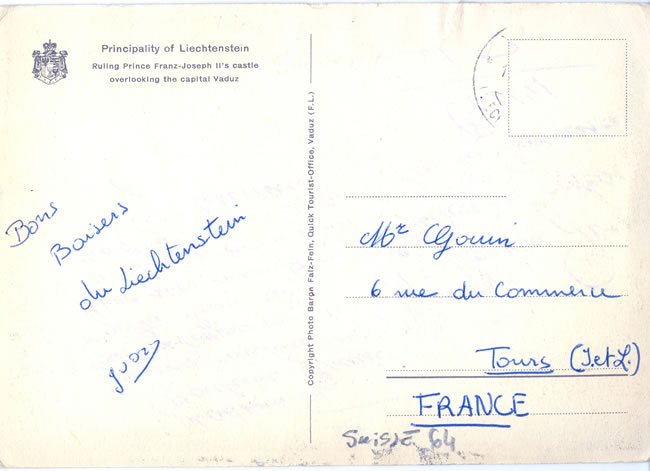 Principality of Liechtenstein
Ruling Prince Franz-Joseph II's castle
overlooking the capital Vaduz
Bons
Baisers
du Liechtenstein
Copyright Photo Baron Falz-Fein, Quick Tourist-Office, Vaduz (F.L.)
Mr Gouin
6 rue du Commerce
Tours (I.et L.)
FRANCE
Suisse 64